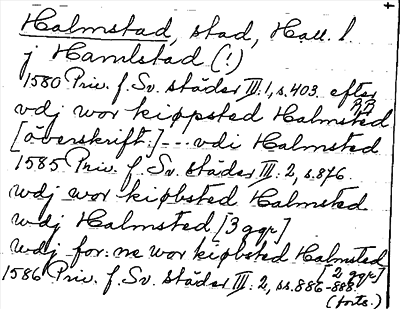 Halmstad, stad, Hall. l.
j Hamlstad (!)
1580 Priv. f. Sv. städer III:1, s. 403. efter RR
vdj wor kiøpsted Halmsted
[överskrift.] --- vdi Halmsted
1585 Priv. f. Sv. städer III:2, s. 876.
wdj wor kiøbsted Halmsted
wdj Halmsted [3 ggr]
wdj for:ne wor kiøbsted Halmsted [2 ggr]
1586 Priv. f. Sv. städer III:2, ss. 886-888
(forts.)